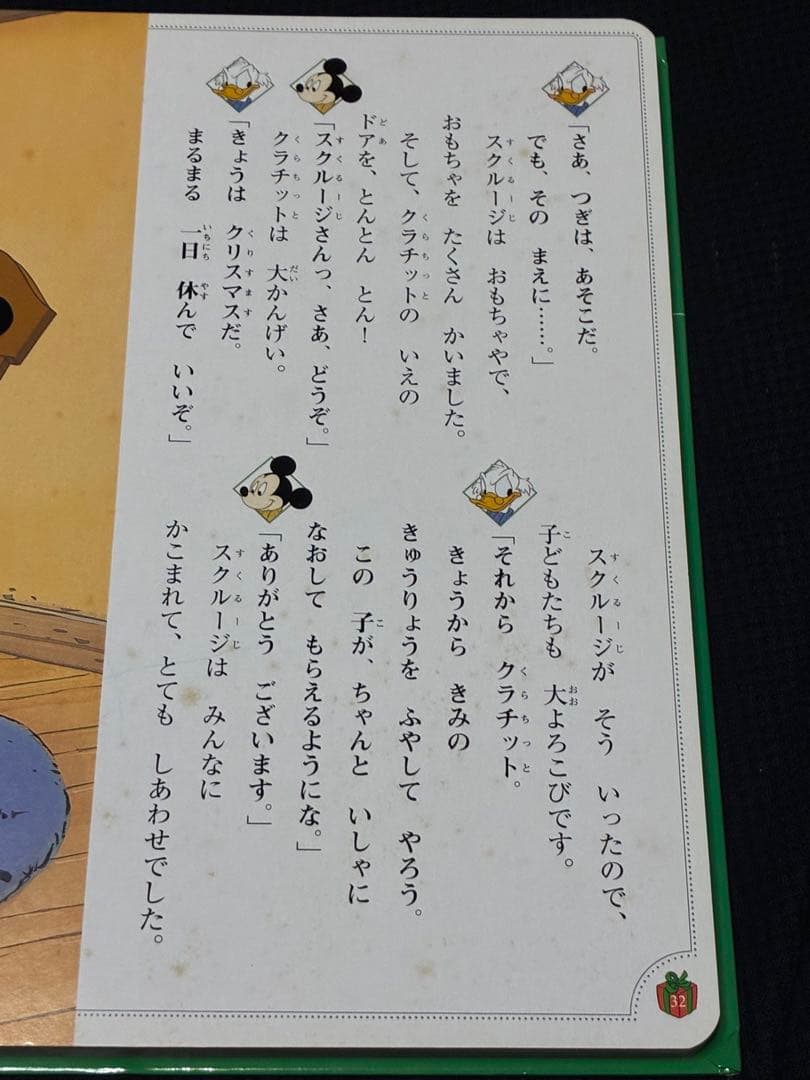 「さあ、つぎは、あそこだ。
でも、その まえに……。」
スクルージは おもちゃやで、
おもちゃを たくさん かいました。
そして、クラチットの いえの
ドアを、とんとん とん！
「スクルージさんっ、さあ、どうぞ。」
クラチットは 大かんげい。
「きょうは クリスマスだ。
まるまる 一日 休んで いいぞ。」
スクルージが そう いったので、
子どもたちも 大よろこびです。
「それから クラチット。
きょうから きみの
きゅうりょうを ふやして やろう。
この 子が、ちゃんと いしゃに
なおして もらえるようにな。」
「ありがとう ございます。」
スクルージは みんなに
かこまれて、とても しあわせでした。
32